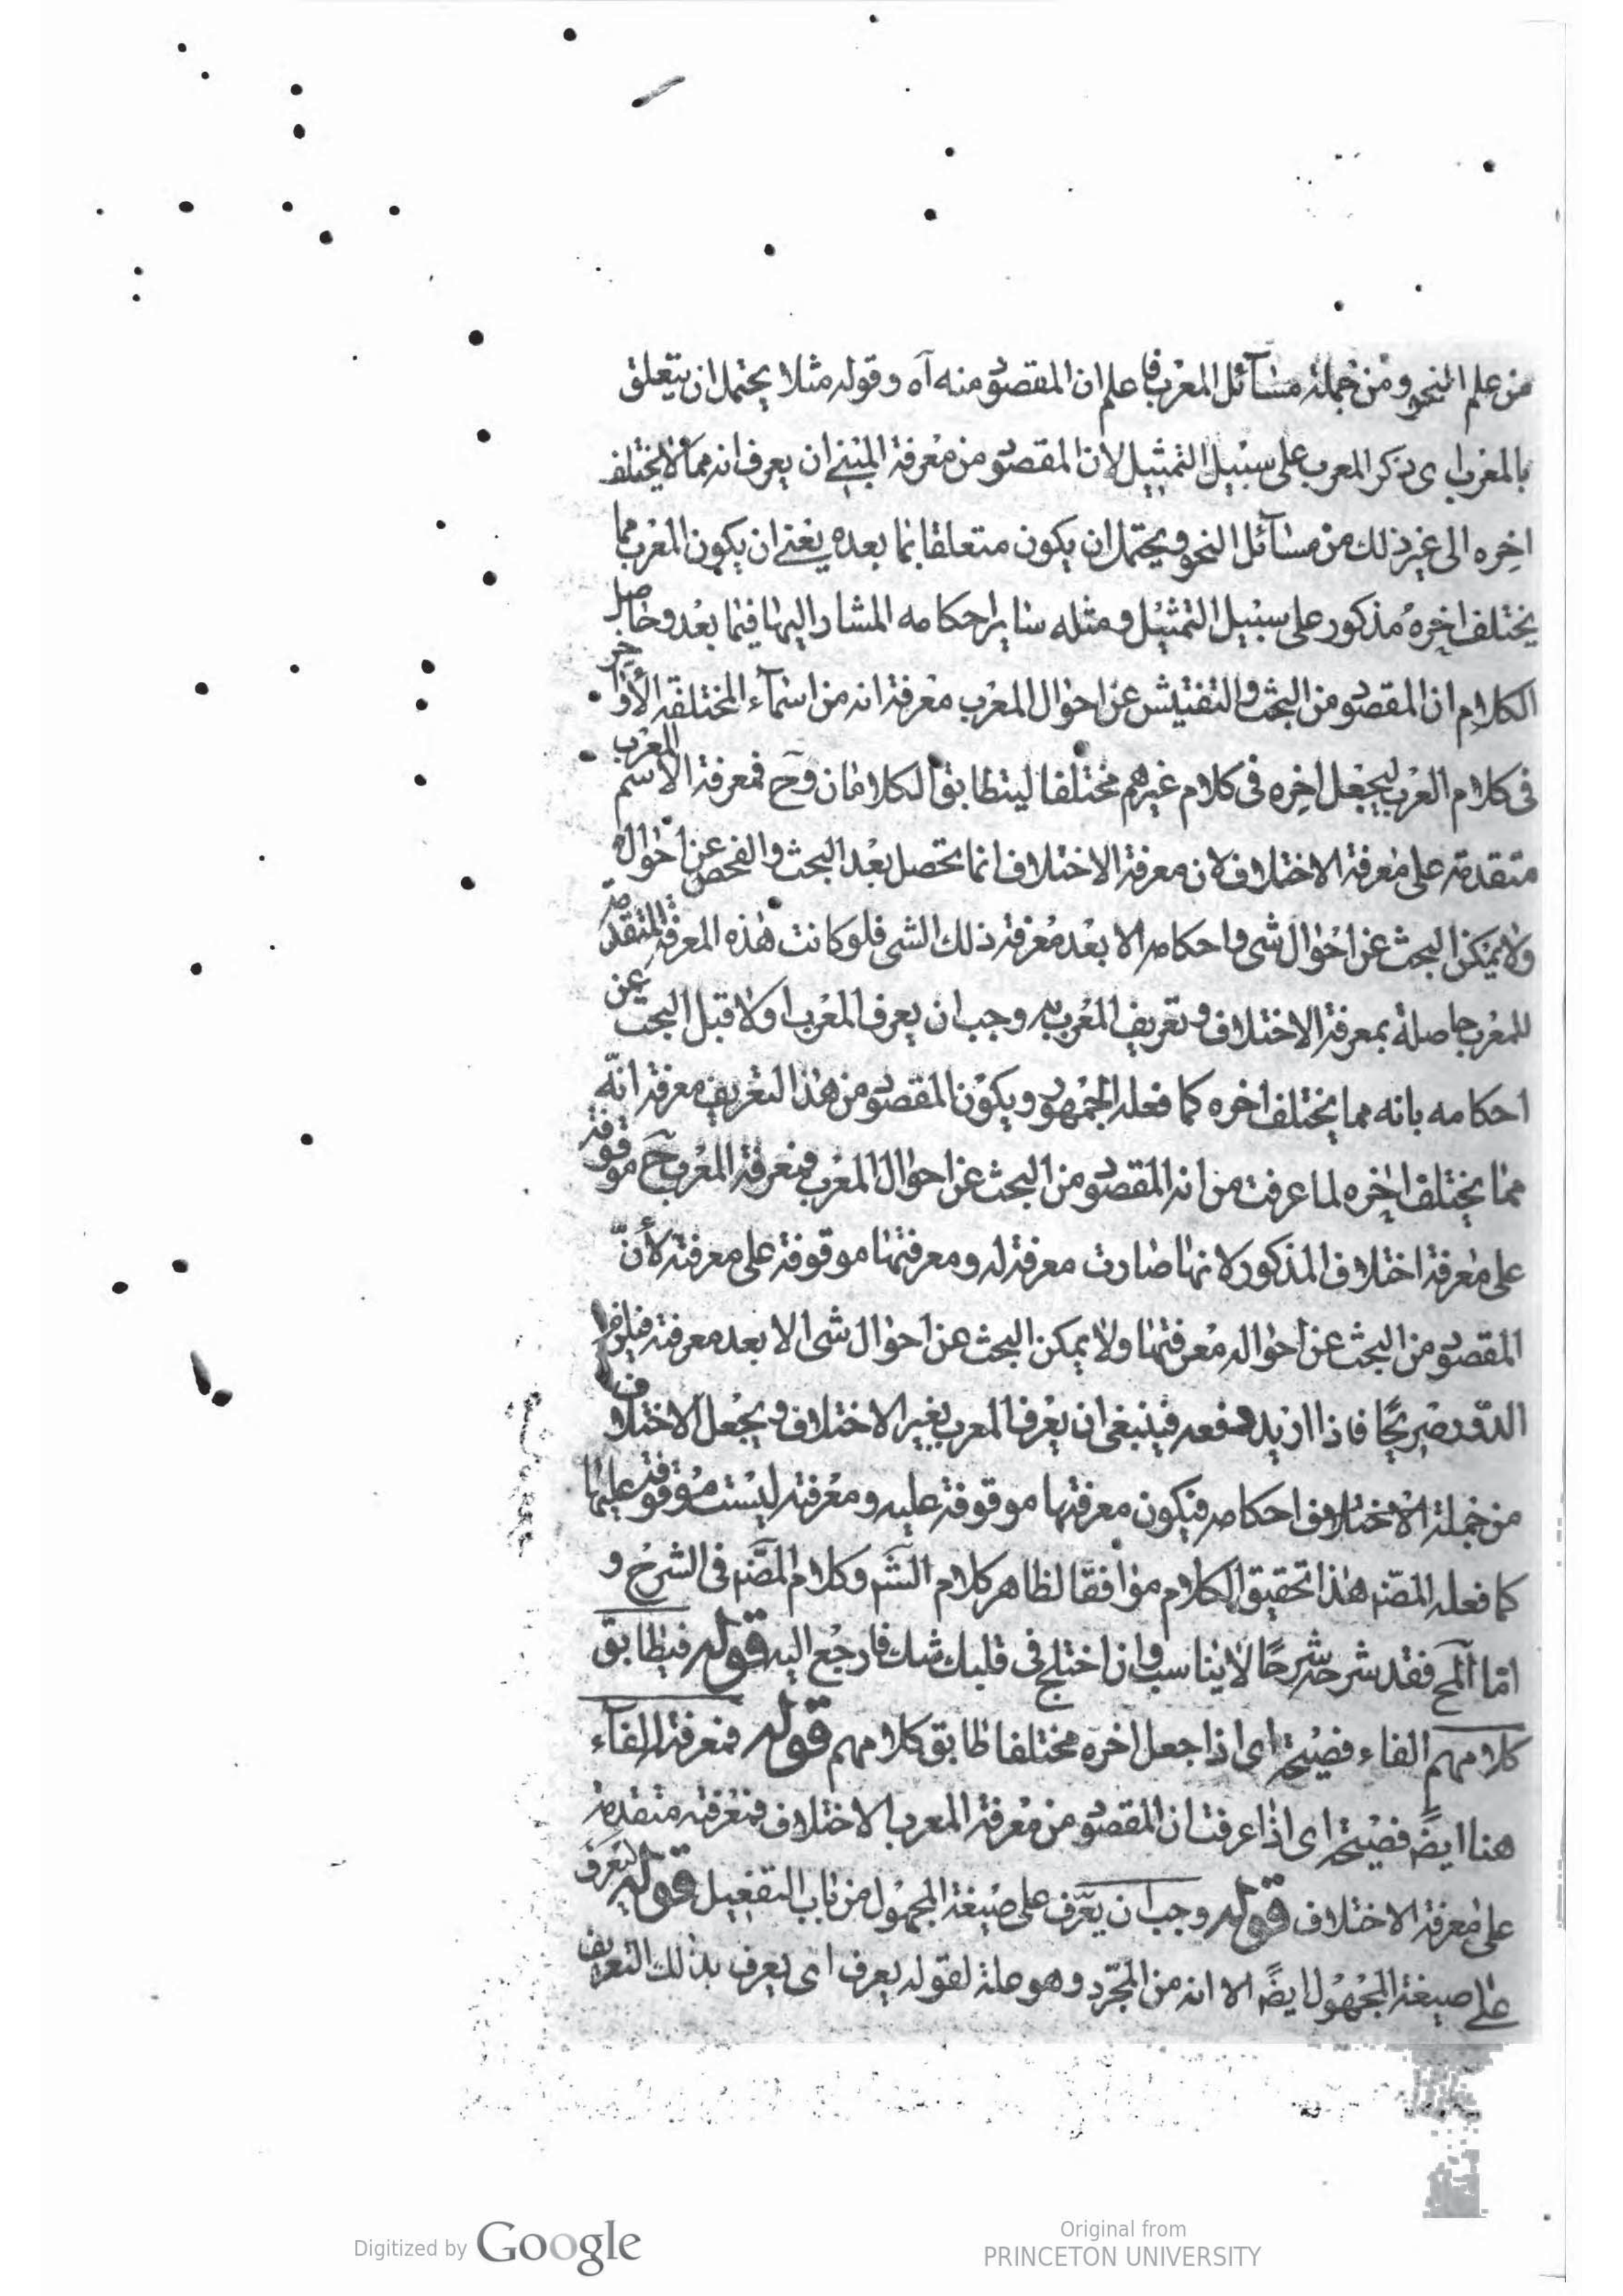 من علم النحو ومن جملة مسآئل المعرب فاعلم ان المقصود منه آه وقوله مثلا يحتمل ان يتعلق
بالمعرب اى ذكر المعرب على سبيل التمثيل لان المقصود من معرفة المبنى ان يعرف انه مما لا يختلف
اخره الى غير ذلك من مسآئل النحو ويحتمل ان يكون متعلقا بما بعده يعنى ان يكون المعرب مما
يختلف اخره مذكور على سبيل التمثيل ومثله سايراحكامه المشار اليها فيما بعد وحاصل
الكلام ان المقصود من البحث والتفتيش عن احوال المعرب معرفة انه من اسمآء المختلفة الأواخر
فى كلام العرب ليجعل اخره فى كلام غيرهم مختلفا ليتطابق الكلامان وح فمعرفة الاسم المعرب
متقدمة على معرفة الاختلاف لان معرفة الاختلاف انما تحصل بعد البحث والفحص عن احواله
ولا يمكن البحث عن احوال شى واحكامه الا بعد معرفة ذلك الشى فلو كانت هذه المعرفة المتقدمة
للمعرب حاصلة بمعرفة الاختلاف وتعريف المعرب به وجب ان يعرف المعرب اولا قبل البحث عن
احكامه بانه مما يختلف اخره كما فعله الجمهور ويكون المقصود من هذا التعريف معرفة انّه
مما يختلف اخره لما عرفت من انه المقصود من البحث عن احوال المعرب فمعرفة المعرب ح موقوفة
على معرفة اختلاف المذكور لانها صارت معرفة له ومعرفتها موقوفة على معرفته لأنّ
المقصود من البحث عن احواله معرفتها ولا يمكن البحث عن احوال شى الا بعد معرفته فيلزم
الدّور صريحًا فاذا اريد دفعه فينبغى ان يعرف المعرب بغير الاختلاف ويجعل الاختلاف
من جملة احكامه فيكون معرفتها موقوفة عليه ومعرفته ليست موقوفة عليها
كما فعله المصّ هذا تحقيق الكلام موافقا لظاهر كلام الشّ وكلام المصّ فى الشرح و
امّا المح فقد شرحه شرحًا لا يناسب وان اختلج فى قلبك شك فارجع اليه قوله فيطابق
كلامهم الفاء فصيحة اى اذا جعل اخره مختلفا طابق كلامهم قوله فمعرفة الفآء
هنا ايضً فصيحة اى اذا عرفت ان المقصود من معرفة المعرب الاختلاف فمعرفته متقدمة
على معرفة الاختلاف قوله وجب ان يعّرف على صيغة المجهول من باب التفعيل قوله ليعرف
على صيغة المجهول ايضً الا انه من المجّرد وهو صلة لقوله يعرف اى يعرف بذلك التعريف
Digitized by Google
Original from
PRINCETON UNIVERSITY